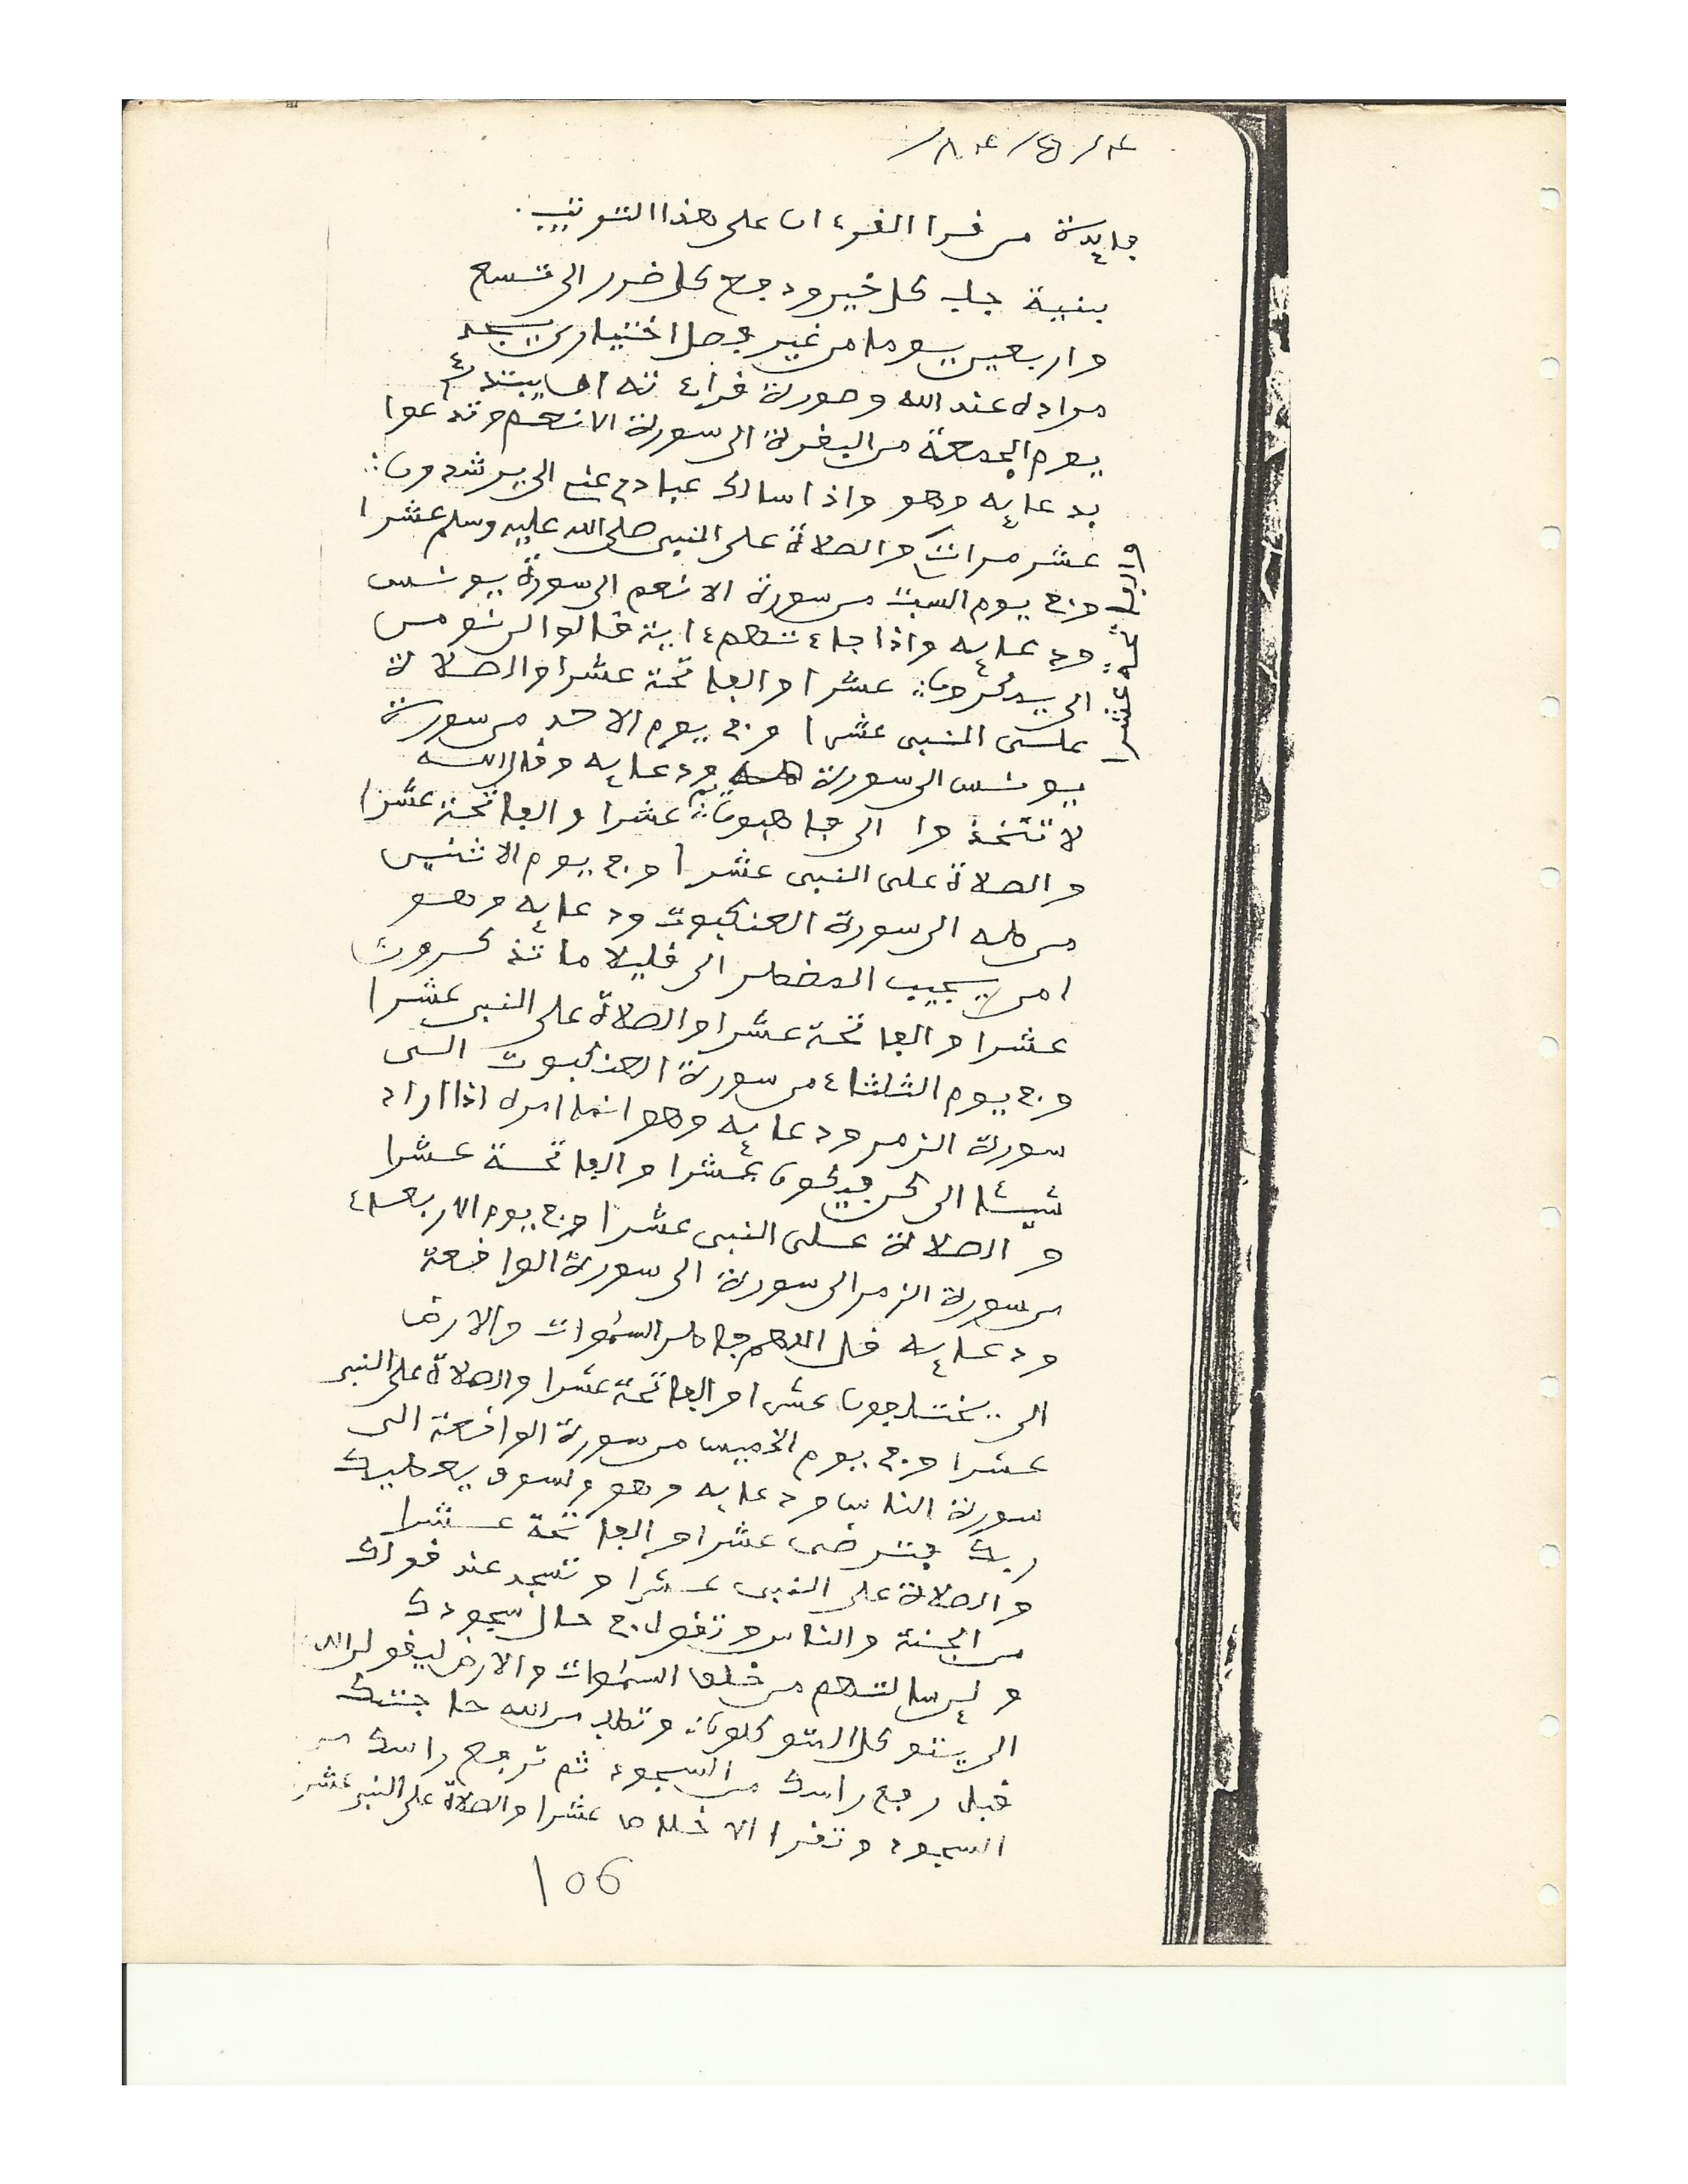 فايدة من قرا القرءان على هذا الترتيب.
بنية جلب كل خير ودفع كل ضرر الى تسع
واربعين يوما من غير فصل اختياري يجد
مراده عند الله وصورة قراءته انما يبتدئ
يوم الجمعة من البقرة الى سورة الانعم وتدعوا
بدعايه وهو واذا سالك عبادي عني الى يرشدون
عشر مرات والصلاة على النبي صلى الله عليه وسلم عشرا
والفاتحة عشرا
وفي يوم السبت من سورة الانعم الى سورة يونس
ودعايه واذا جاءتهم ءاية قالوا لن نومن
الى يمكرون عشرا والفاتحة عشرا والصلاة
على النبي عشرا وفي يوم الاحد من سورة
يونس الى سورة طه ودعايه وقال الله
لا تتخذوا الى فارهبون عشرا والفاتحة عشرا
والصلاة على النبي عشرا وفي يوم الاثنين
من طه الى سورة العنكبوت ودعايه وهو
امن يجيب المضطر الى قليلا ما تذكرون
عشرا والفاتحة عشرا والصلاة على النبي عشرا
وفي يوم الثلثاء من سورة العنكبوت الى
سورة الزمر ودعايه وهو انما امره اذا اراد
شيئا الى كن فيكون عشرا والفاتحة عشرا
والصلاة على النبي عشرا وفي يوم الاربعاء
من سورة الزمر الى سورة الواقعة
ودعايه قل اللهم فاطر السموات والارض
الى يختلفون عشرا والفاتحة عشرا والصلاة على النبي
عشرا وفي يوم الخميس من سورة الواقعة الى
سورة الناس ودعايه وهو ولسوف يعطيك
ربك فترضى عشرا والفاتحة عشرا
والصلاة على النبي عشرا وتسجد عند قولك
من الجنة والناس وتقول في حال سجودك
ولين سالتهم من خلق السموات والارض ليقولن الله
الى يتوكل المتوكلون وتطلب من الله حاجتك
قبل رفع راسك من السجود ثم ترفع راسك من
السجود وتقرا الاخلاص عشرا والصلاة على النبي عشرا
106